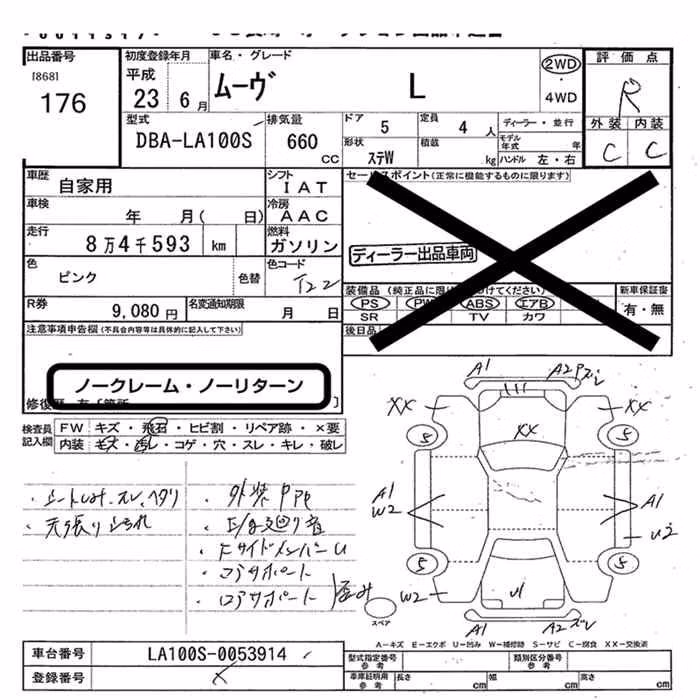 出品番号
[868]
176
初度登録年月
平成
23 6月
車名・グレード
ムーヴ L
2WD
・
4WD
評価点
R
外装 内装
C C
型式
DBA-LA100S
排気量
660
CC
ドア
5
定員
4 人
形状
ステW
積載
kg
ディーラー・並行
モデル年式 年
ハンドル 左・右
車歴
自家用
シフト
IAT
車検
年 月( 日)
冷房
AAC
走行
8万4千593 km
燃料
ガソリン
色
ピンク
色替
色コード
T22
R券
9,080円
名変通知期限
月 日
セールスポイント(正常に機能するものに限ります)
ディーラー出品車両
PS ABS エアB
SR TV カワ
後日品
新車保証書
有・無
注意事項申告欄(不具合内容等は具体的に記入して下さい)
ノークレーム・ノーリターン
検査員記入欄
FW キズ・飛石・ヒビ割・リペア跡・×要
内装 キズ・汚レ・コゲ・穴・スレ・キレ・破レ
・外装PPE
・天張り
・下廻り音
・Fサイドメンバー U
・コアサポート
・ロアサポート
歪み
A1 A2
XX XX
XX
5 5
A1
W2
A1
U2
5 5
W2
U1
A1 A2
スペア
A-キズ E-エクボ U-凹み W-補修跡 S-サビ C-腐食 XX-交換済
車台番号
LA100S-0053914
登録番号
型式指定番号
参考
類別区分番号
参考
車庫証明用
参考
長さ cm
幅 cm
高さ cm